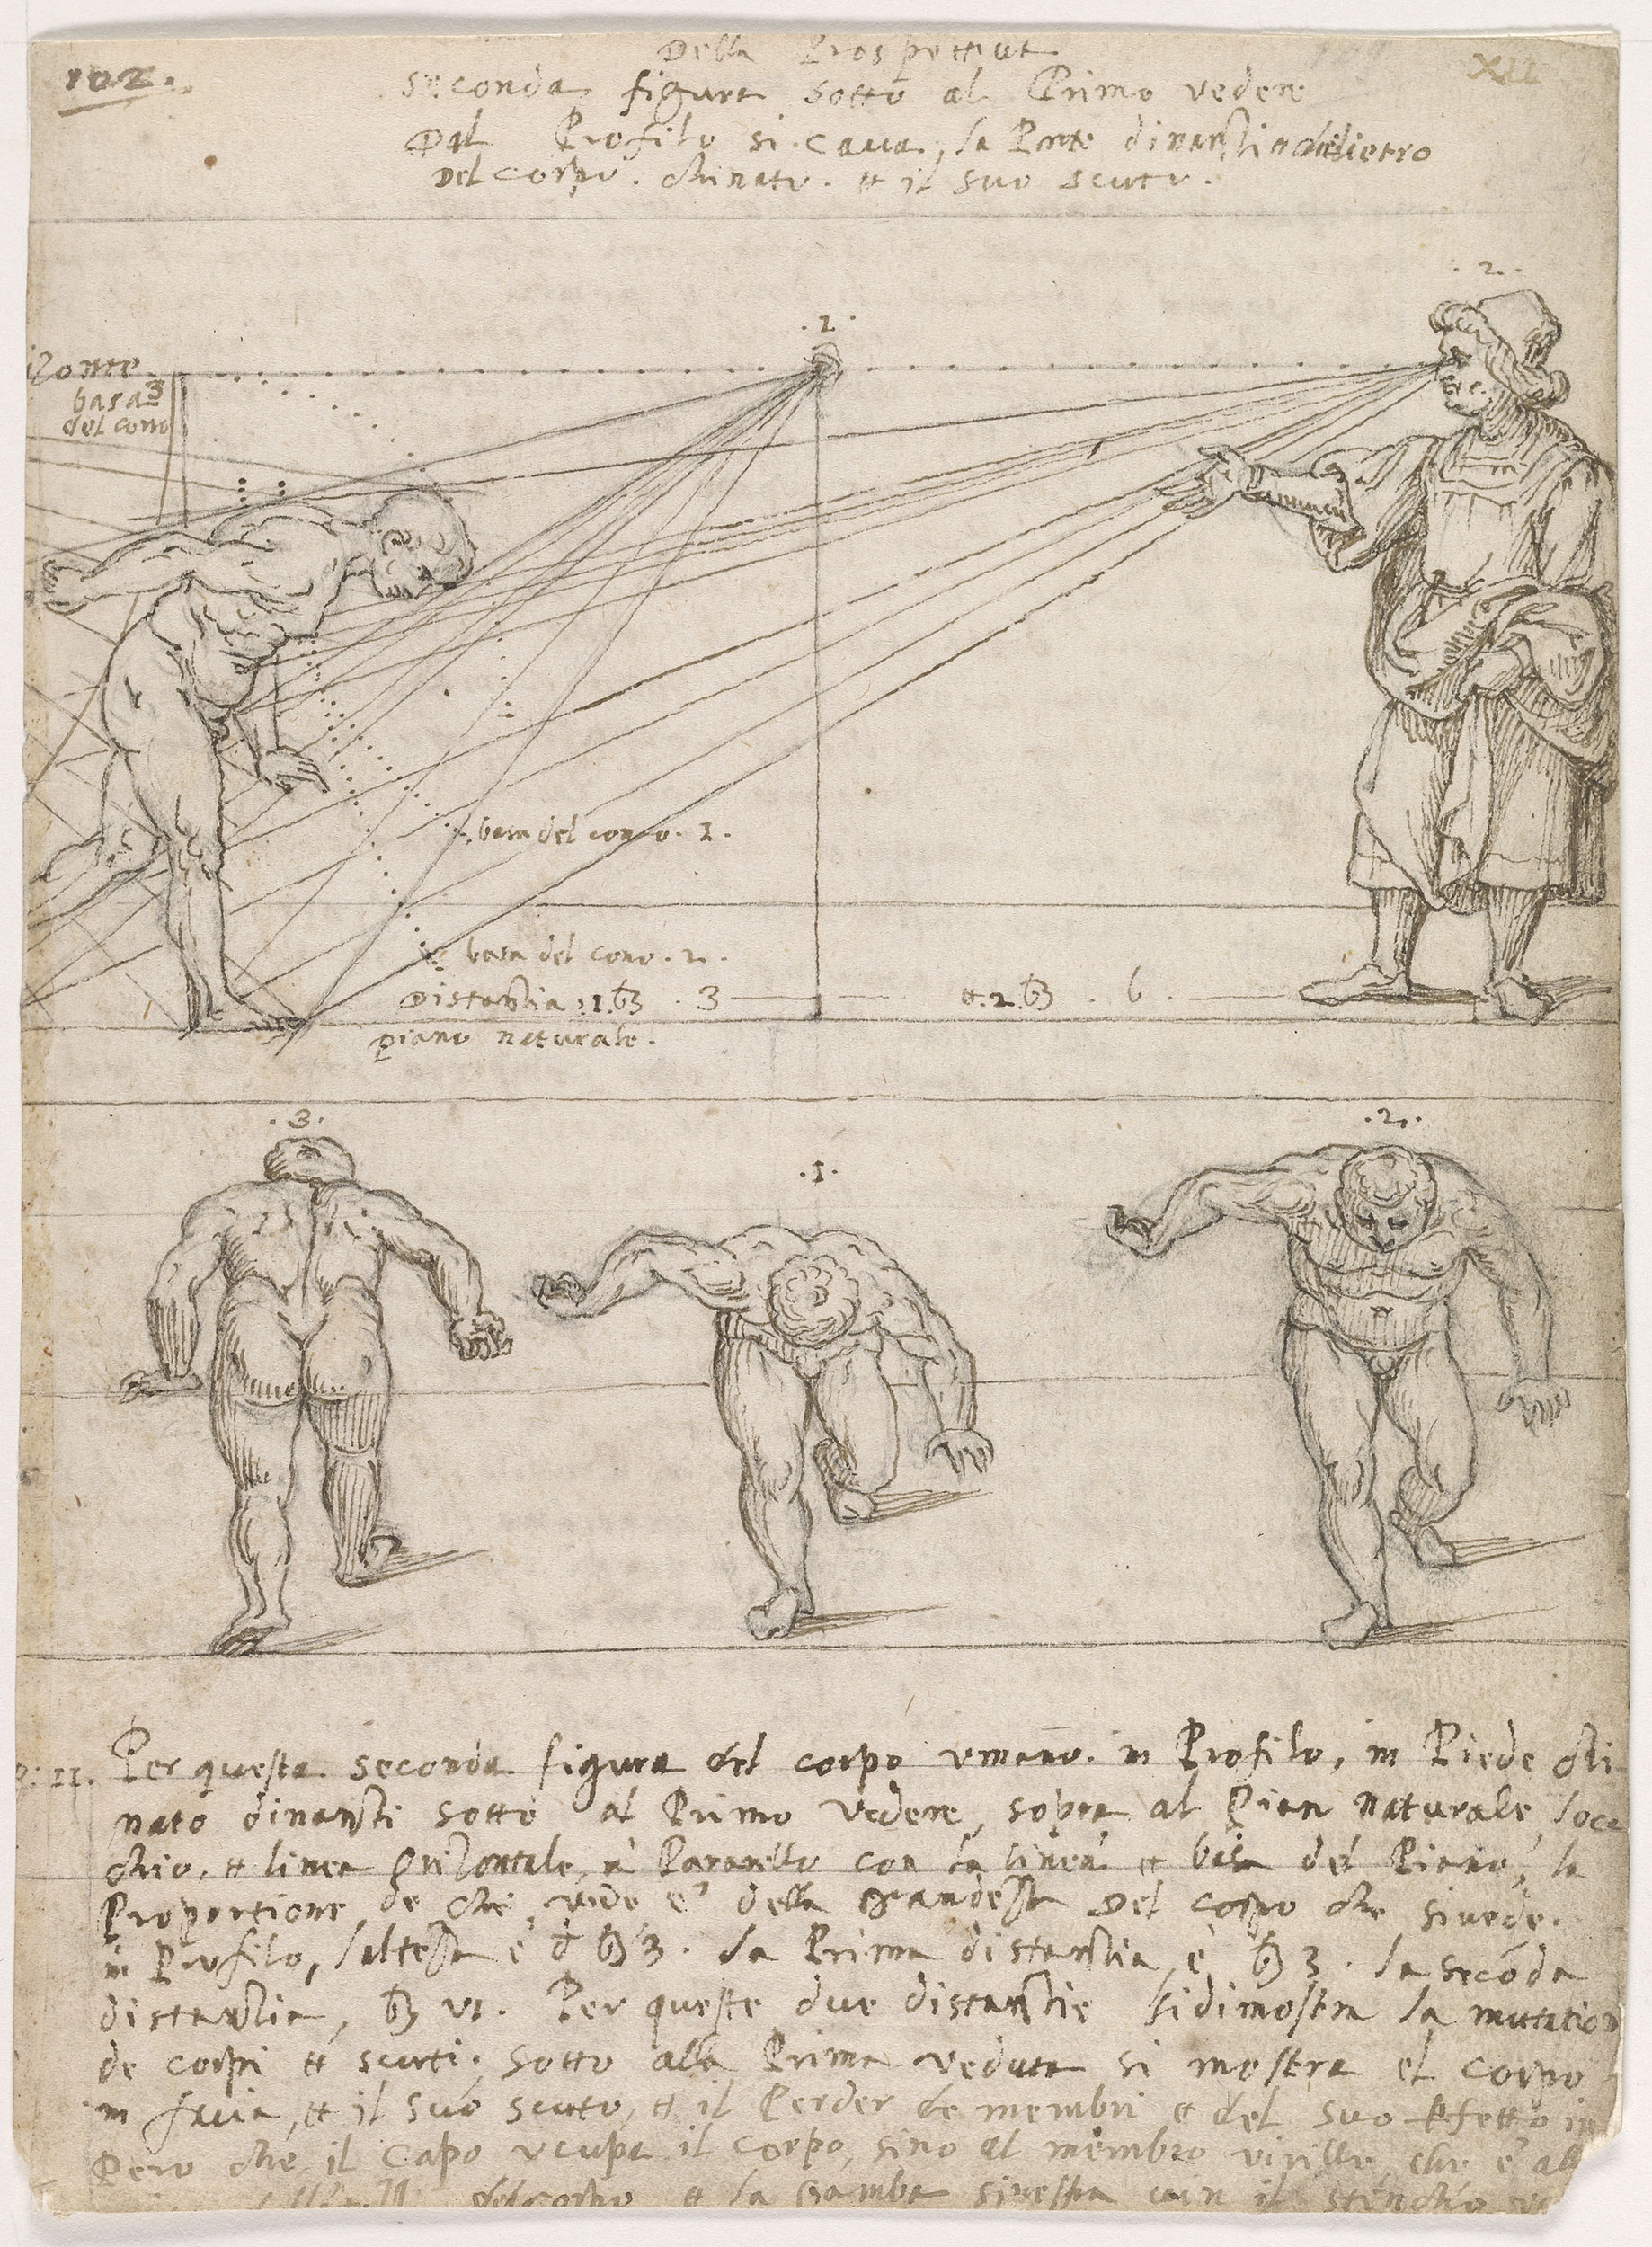 102.
XII
Della Prospettiva
seconda figura sotto al Primo vedere
Dal Profilo si cava, la Parte dinanti
Del corpo. chinato. et il suo scurto.
.2.
.1.
izonte
basa 3
del cono
basa del cono. 1.
basa del cono. 2.
Distantia .1. b3 . 3
et .2. b3 . 6.
piano naturale.
.3.
.1.
.2.
11. Per questa seconda figura del corpo umano. in Profilo, in Piede chi
nato dinanti sotto al Primo vedere, sopra al Pian naturale, loc
chio, et linea orizontale, Pararello con la linea et basa del Piano, la
Proportione de che vede e della grandessa Del corpo che si vede.
in Profilo, laltessa è d b3 3. la Prima distantia, è b3 3. la secōda
distantia, b3 vi. Per queste due distantie si dimostra la mutation
de corpi et scurti. sotto alla Prima veduta si mostra el corpo
in facia, et il suo scurto, et il Perder de membri et del suo Effetto in
Pero che il capo ucupa il corpo, sino al membro virille, che è all
del corpo et la gamba sinestra con il stinchio